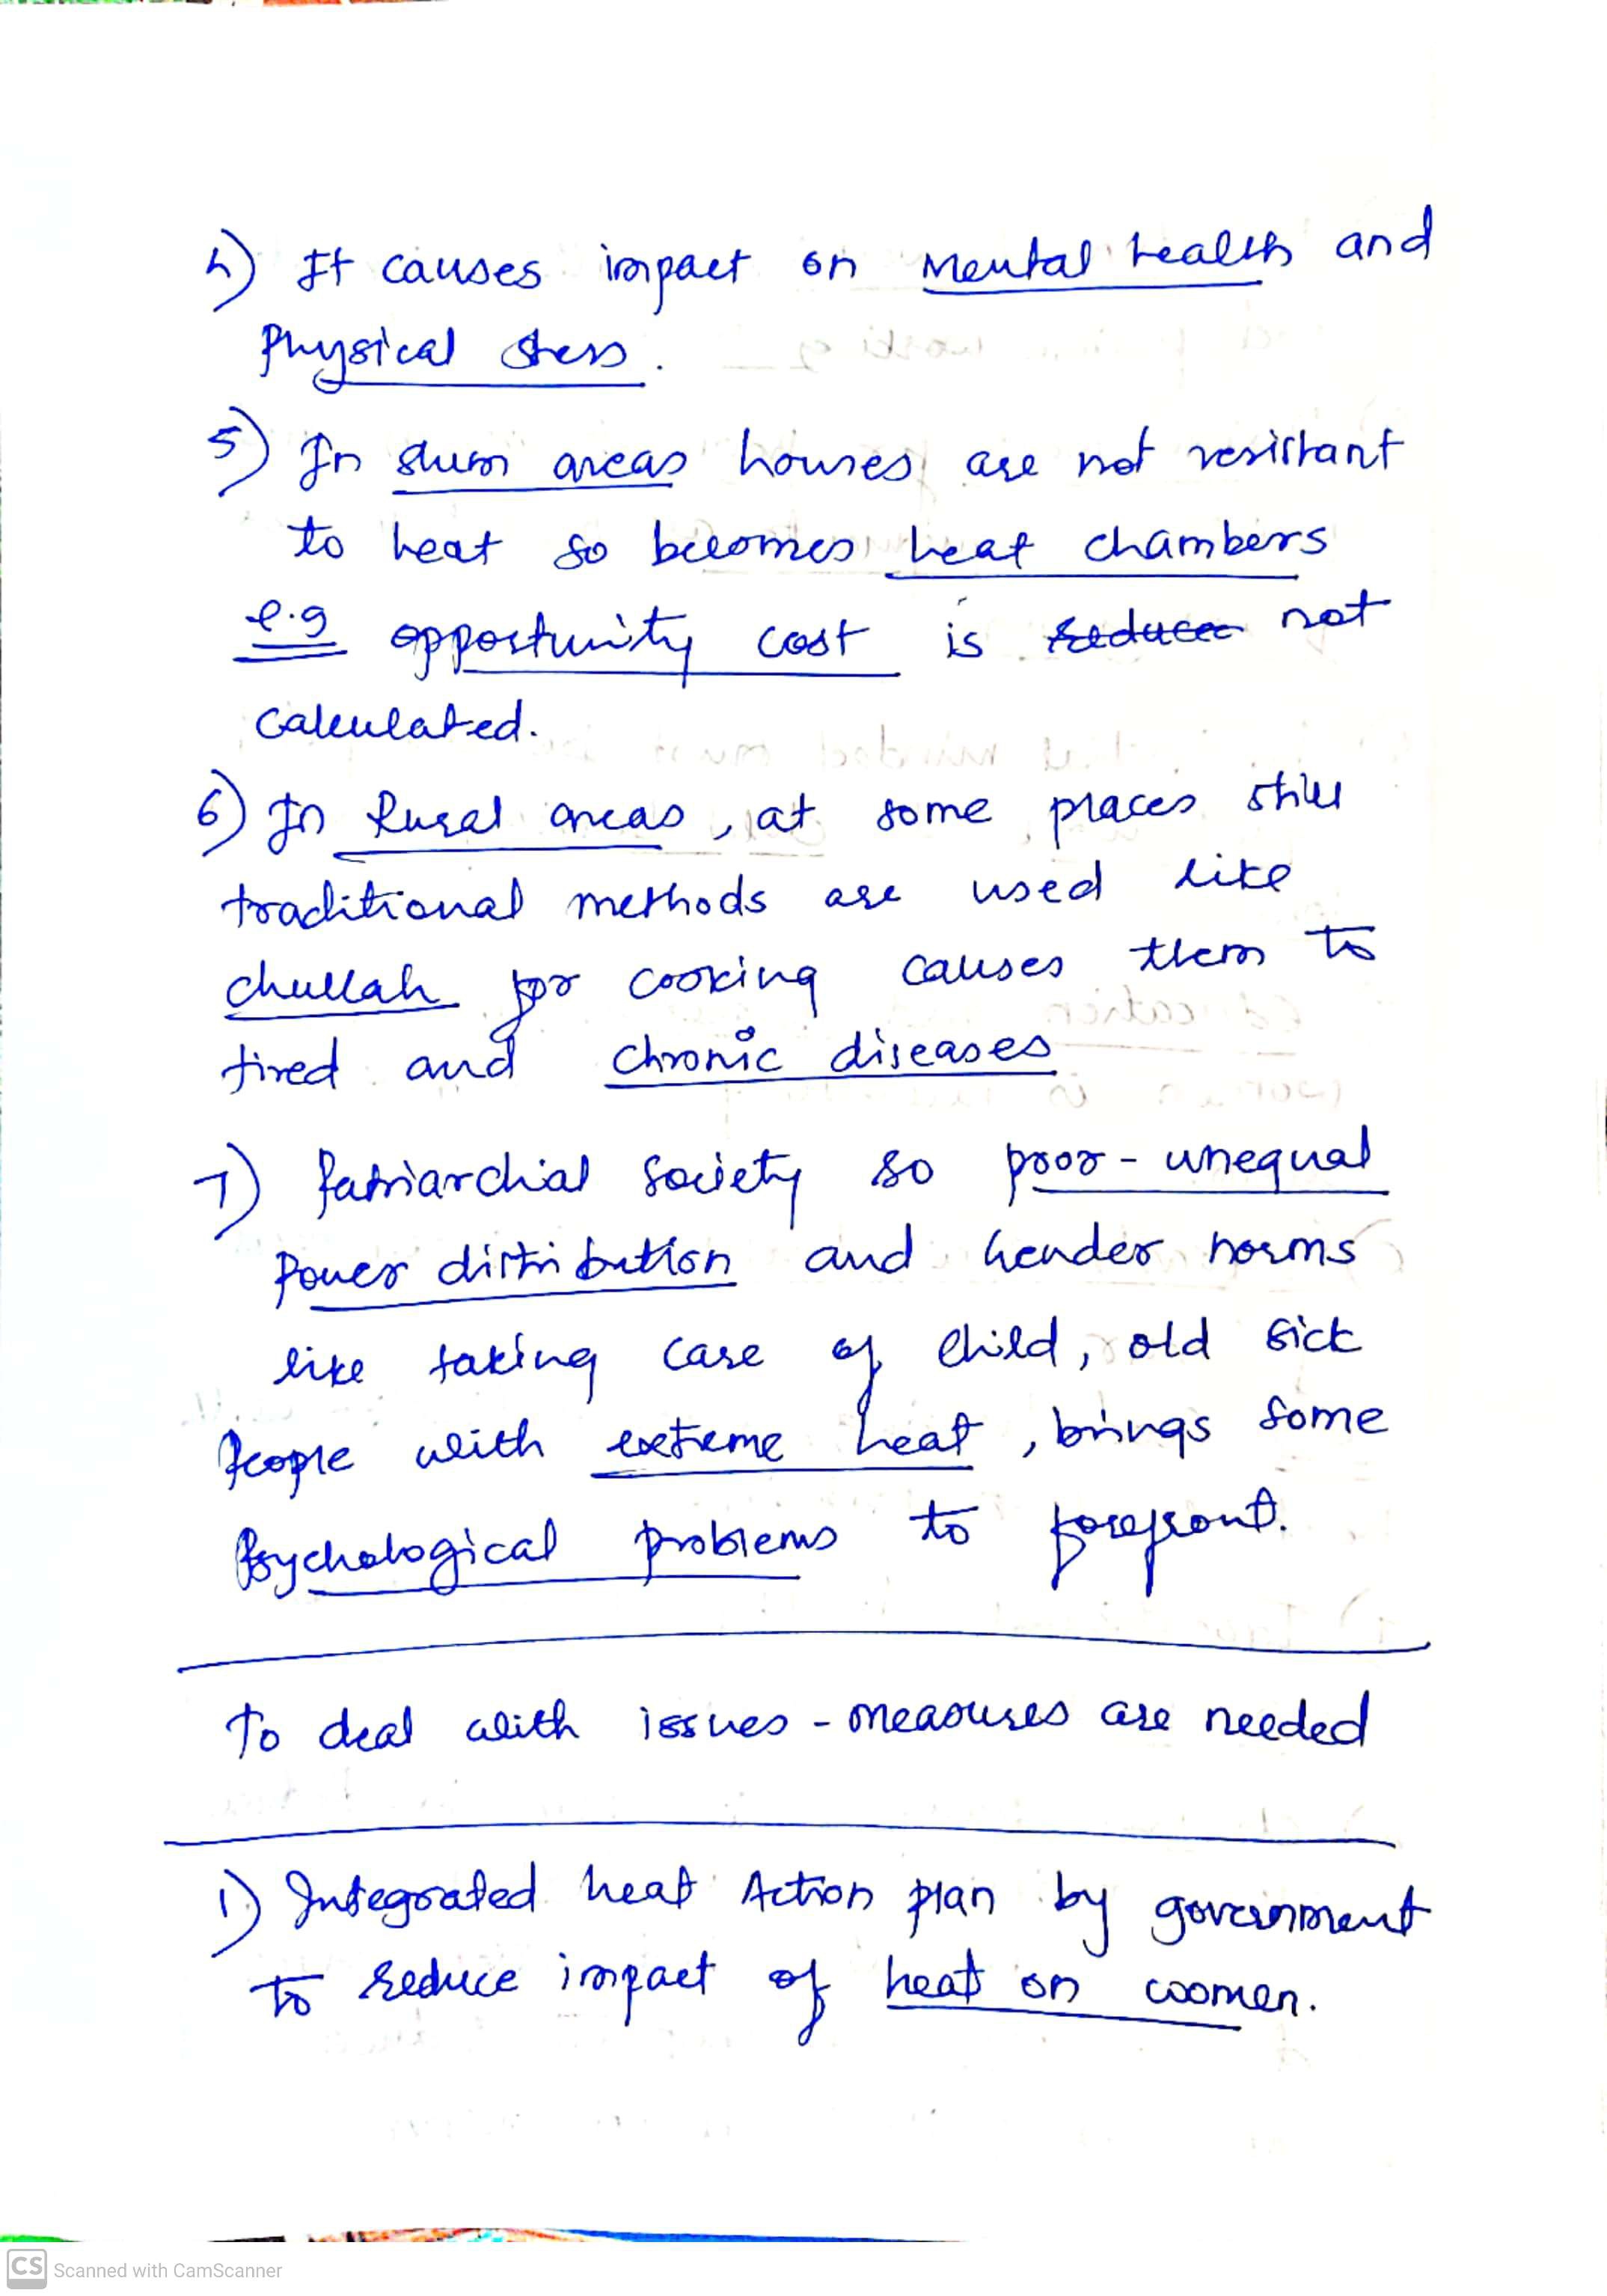 4) It causes impact on Mental health and
Physical stress.
5) In slum areas houses are not resistant
to heat so becomes heat chambers
e.g opportunity cost is reduce not
calculated.
6) In Rural areas, at some places still
traditional methods are used like
chullah for cooking causes them to
tired and chronic diseases
7) Patriarchial society so poor - unequal
Power distribution and Gender norms
like taking care of child, old sick
People with extreme heat, brings some
Psychological problems to forefront.
To deal with issues - measures are needed
1) Integrated heat Action plan by government
to reduce impact of heat on women.
CS Scanned with CamScanner